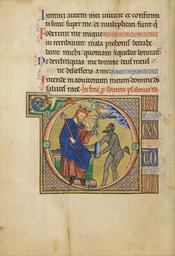 Inimici autem mei uiuunt et confirma
ti sunt super me et multiplicati sunt qui
oderunt me inique
Qui retribuunt mala pro bonis detrahe
bant michi quoniam sequebar bonitatem
Ne derelinquas me domine deus meus
ne discesseris a me
Intende in adiutorium meum domine deus
salutis mee